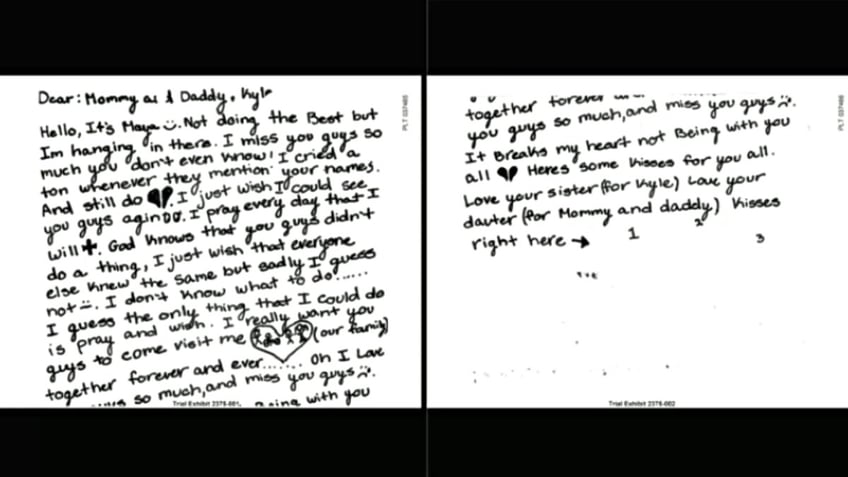 Dear: Mommy as & Daddy, Kyle
Hello, It's Maya Not doing the Best but
Im hanging in there. I miss you guys so
much you don't even know! I cried a
ton whenever they mention your names.
And still do 💔. I just wish I could see
you guys agin. I pray every day that I
will ✝. God knows that you guys didn't
do a thing, I just wish that everyone
else knew the same but sadly I guess
not. I don't know what to do......
I guess the only thing that I could do
is pray and wish. I really want you
guys to come visit me (our family)
together forever and ever....... Oh I Love
so much, and miss you guys
being with you
Trial Exhibit 2375-001
PLT 037465
together forever
you guys so much, and miss you guys
It Breaks my heart not Being with you
all 💔 Heres some kisses for you all.
Love your sister (for Kyle) Love your
dauter (for Mommy and daddy) Kisses
right here → 1 2 3
Trial Exhibit 2375-002
PLT 037466